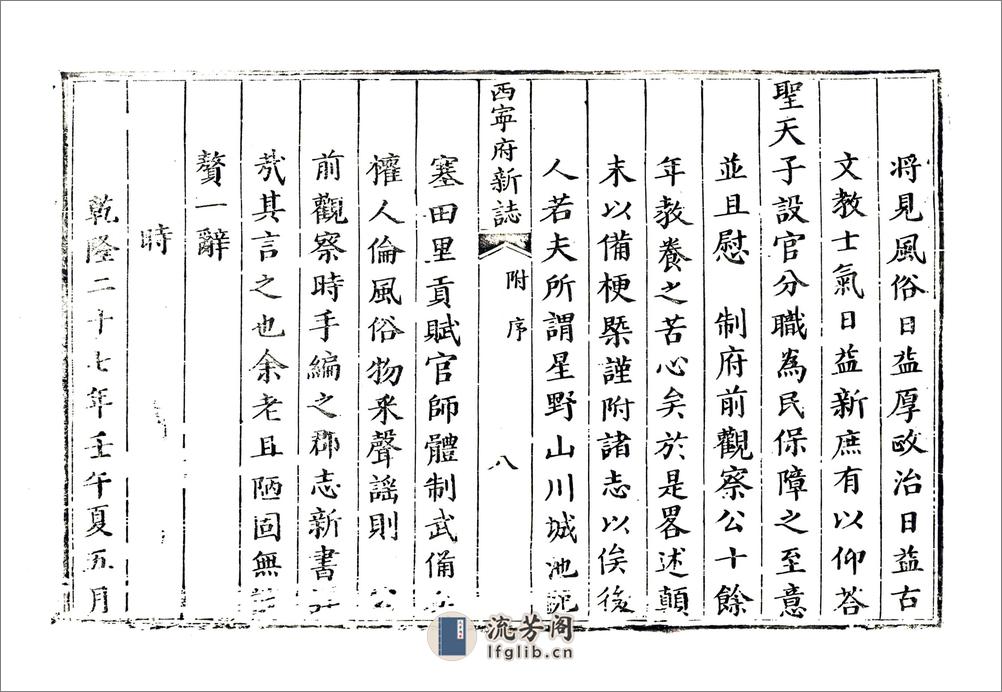 将見風俗日益厚政治日益古
文教士氣日益新庶有以仰荅
聖天子設官分職為民保障之至意
並且慰 制府前觀察公十餘
年教養之苦心矣於是畧述顛
末以備梗槩謹附諸志以俟後
人若夫所謂星野山川城池
西寧府新誌 附序 八
塞田里貢賦官師體制武備
權人倫風俗物釆聲謡則
前觀察時手編之郡志新書
㦲其言之也余老且陋固無
贅一辭
時
乾隆二十七年壬午夏五月
流芳阁
lfglib.cn